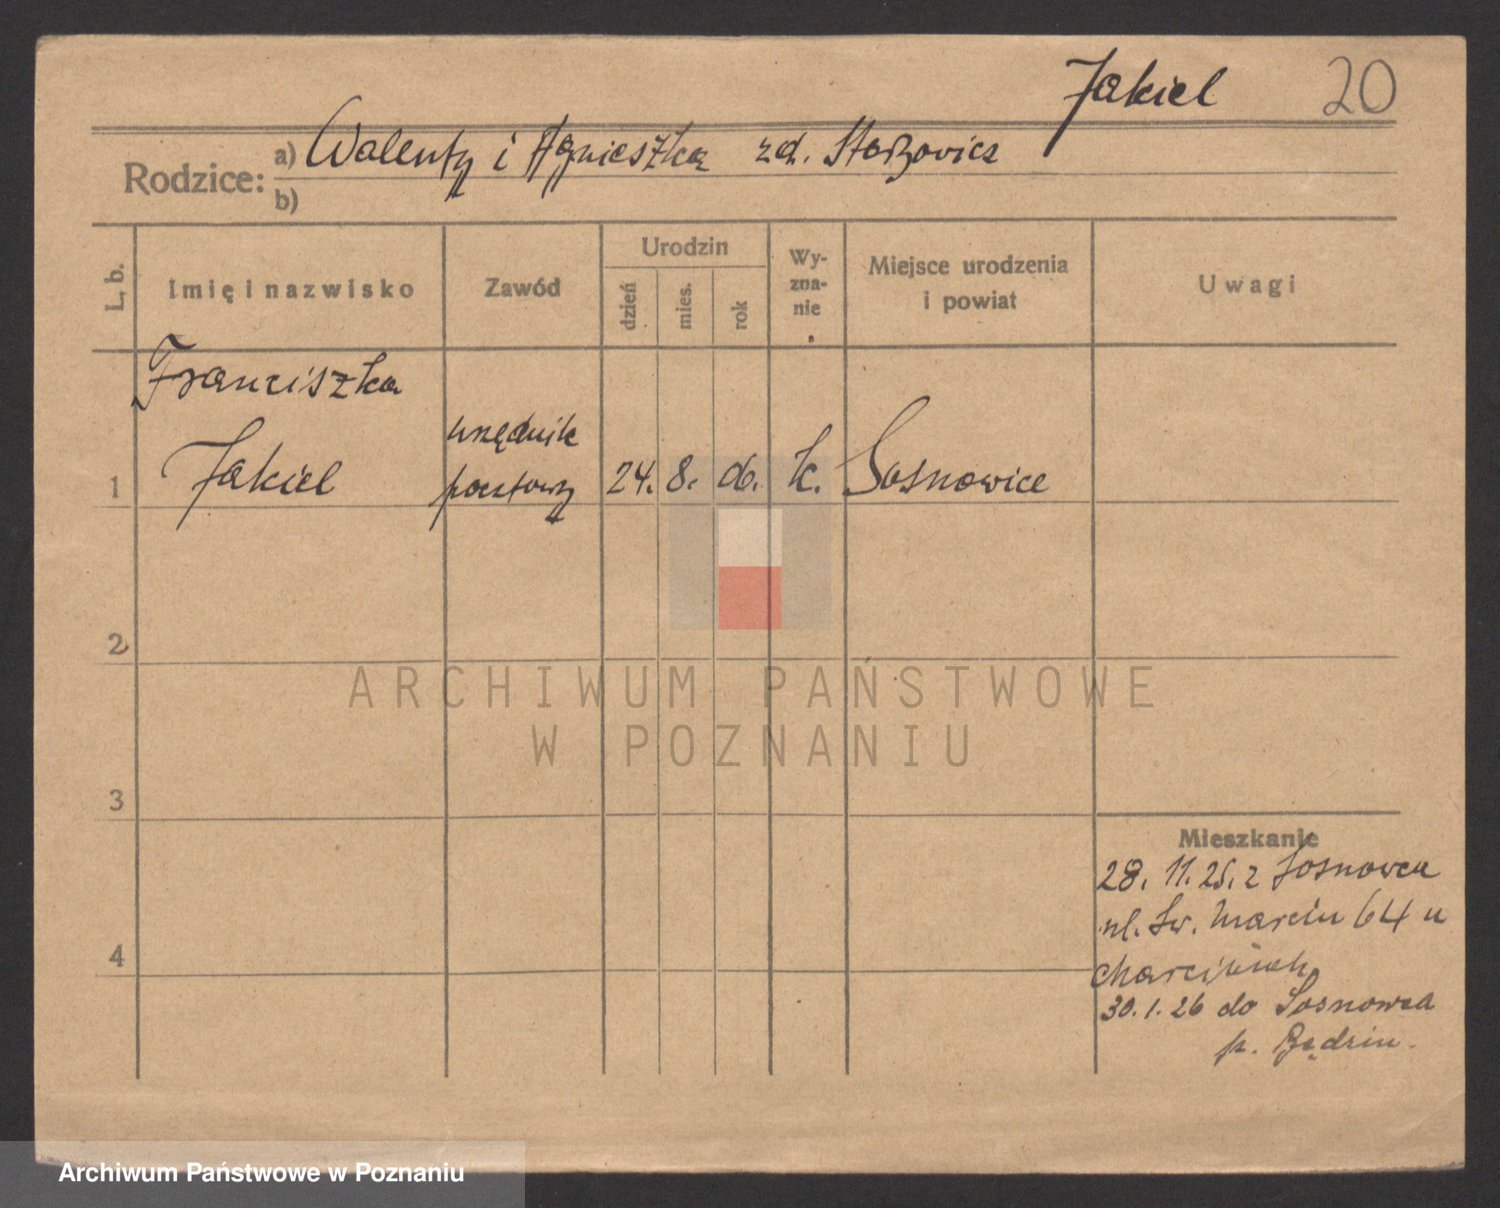 Jakiel 20
Rodzice: a) Walenty i Agnieszka zd.
b)
L. b.
Imię i nazwisko
Zawód
Urodzin
dzień
mies.
rok
Wy-
zna-
nie
Miejsce urodzenia
i powiat
Uwagi
Franciszka
urzędnik
1 Jakiel pocztowy 24. 8. 06. k. Sosnowice
2
3
4
Mieszkanie
28. 11. 25. z Sosnowca
ul. Św. Marcin 64 u
30. 1. 26 do Sosnowca
p. Będzin.
ARCHIWUM PAŃSTWOWE
W POZNANIU
Archiwum Państwowe w Poznaniu